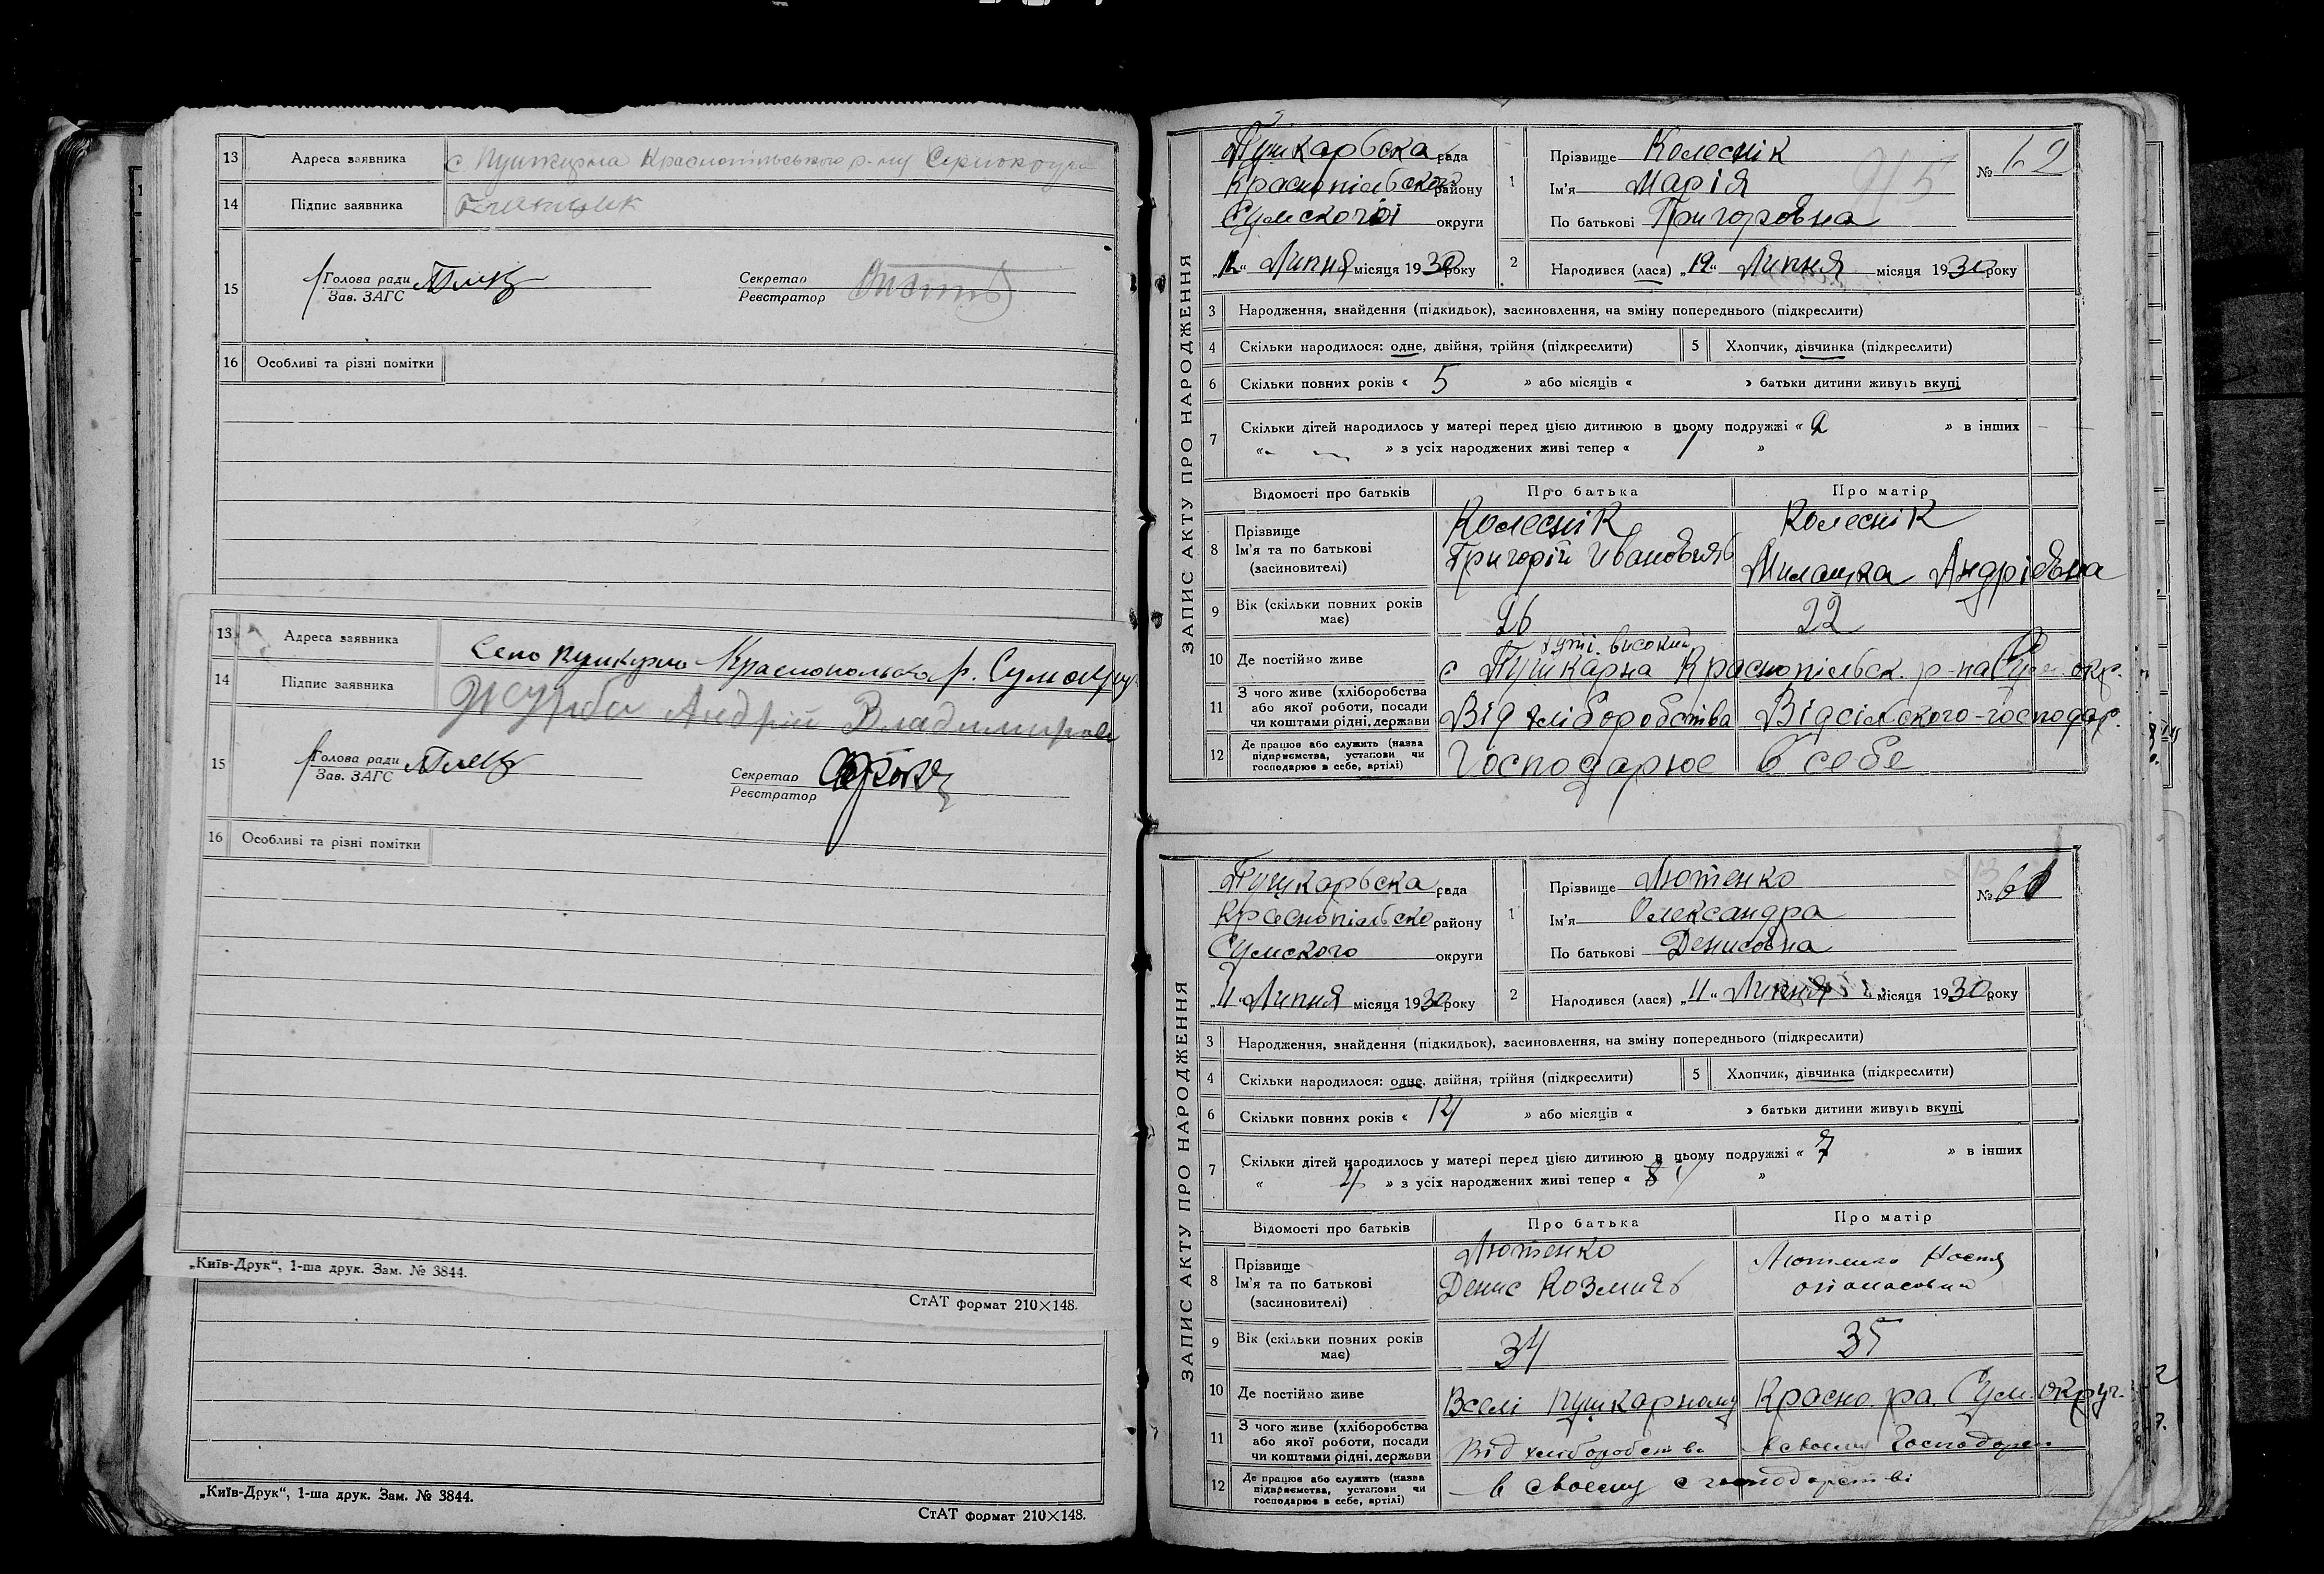 13 Адреса заявника с. Пушкарна Краснопільського р-ну Сумокруги
14 Підпис заявника
15 Голова ради
Зав. ЗАГС
Секретар
Реєстратор
16 Особливі та різні помітки
13 Адреса заявника Село Пушкарна Краснопольсько р. Сумокруг
14 Підпис заявника Журба Андрій Владимиров
15 Голова ради
Зав. ЗАГС
Секретар
Реєстратор
16 Особливі та різні помітки
„Київ-Друк“, 1-ша друк. Зам. № 3844.
СтАТ формат 210×148.
„Київ-Друк“, 1-ша друк. Зам. № 3844.
СтАТ формат 210×148.
ЗАПИС АКТУ ПРО НАРОДЖЕННЯ
Пушкарьска рада
Краснопільского району
Сумского округи
„12“ Липня місяця 1930 року
1 Прізвище Колеснік
Ім'я Марія
По батькові Григоровна
№ 62
2 Народився (лася) „12“ Липня місяця 1930 року
3 Народження, знайдення (підкидьок), засиновлення, на зміну попереднього (підкреслити)
4 Скільки народилося: одне, двійня, трійня (підкреслити) 5 Хлопчик, дівчинка (підкреслити)
6 Скільки повних років « 5 » або місяців « » батьки дитини живуть вкупі
7 Скільки дітей народилось у матері перед цією дитиною в цьому подружжі « 2 » в інших
« - » з усіх народжених живі тепер « 1 »
Відомості про батьків Про батька Про матір
8 Прізвище Колеснік Колеснік
Ім'я та по батькові Григорій Ивановичь Миланка Андріевна
(засиновителі)
9 Вік (скільки повних років має) 26 22
хуті. високий
10 Де постійно живе с Пушкарна Краснопільск. р-на Сум. окр.
11 З чого живе (хліборобства
або якої роботи, посади
чи коштами рідні, держави Від хліборобства Від сільского-господар.
12 Де працює або служить (назва
підприємства, установи чи
господарює в себе, артілі) Господарює в себе
ЗАПИС АКТУ ПРО НАРОДЖЕННЯ
Пушкарьска рада
Краснопільско району
Сумского округи
„11“ Липня місяця 1930 року
1 Прізвище Лютенко
Ім'я Олександра
По батькові Денисовна
№ 61
2 Народився (лася) „11“ Липня місяця 1930 року
3 Народження, знайдення (підкидьок), засиновлення, на зміну попереднього (підкреслити)
4 Скільки народилося: одне, двійня, трійня (підкреслити) 5 Хлопчик, дівчинка (підкреслити)
6 Скільки повних років « 14 » або місяців « » батьки дитини живуть вкупі
7 Скільки дітей народилось у матері перед цією дитиною в цьому подружжі « 7 » в інших
« 4 » з усіх народжених живі тепер « »
Відомості про батьків Про батька Про матір
8 Прізвище Лютенко Лютенко Настя
Ім'я та по батькові Денис Козмичь опанасовна
(засиновителі)
9 Вік (скільки повних років має) 34 35
10 Де постійно живе Вселі Пушкарному Красно. ра. Сум. округ.
11 З чого живе (хліборобства
або якої роботи, посади
чи коштами рідні, держави Від хліборобства в своему господарст
12 Де працює або служить (назва
підприємства, установи чи
господарює в себе, артілі) в своему господарстві